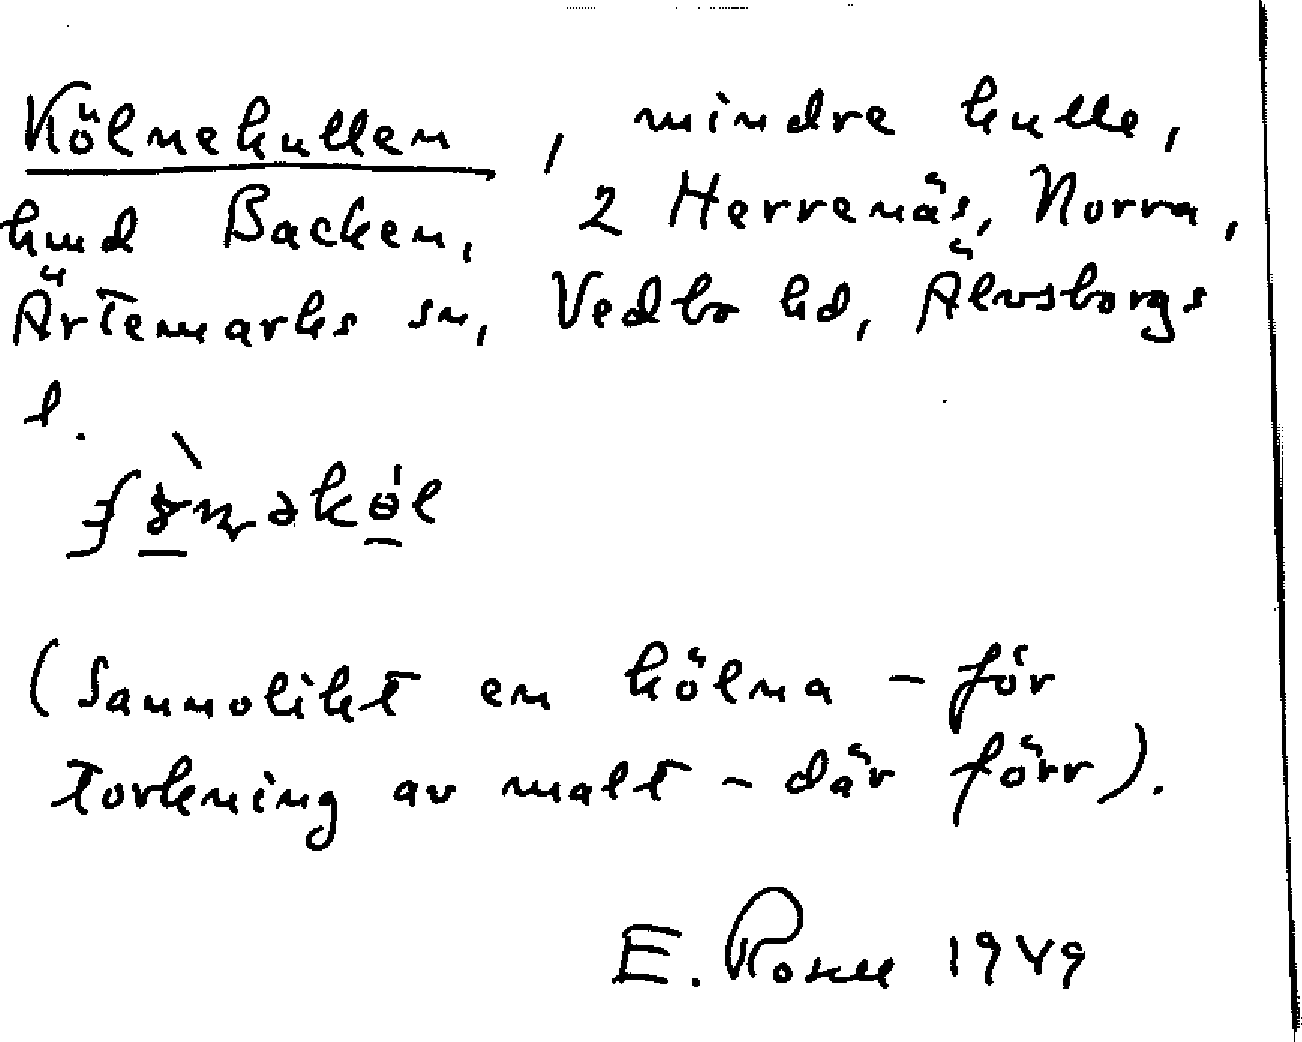 Kölnekullen, mindre kulle,
hmd Backen, 2 Herrenäs, Norra,
Ärtemarks sn, Vedbo hd, Älvsborgs
l.
(Sannolikt en kölna - för
torkning av malt - där förr).
E. 1949